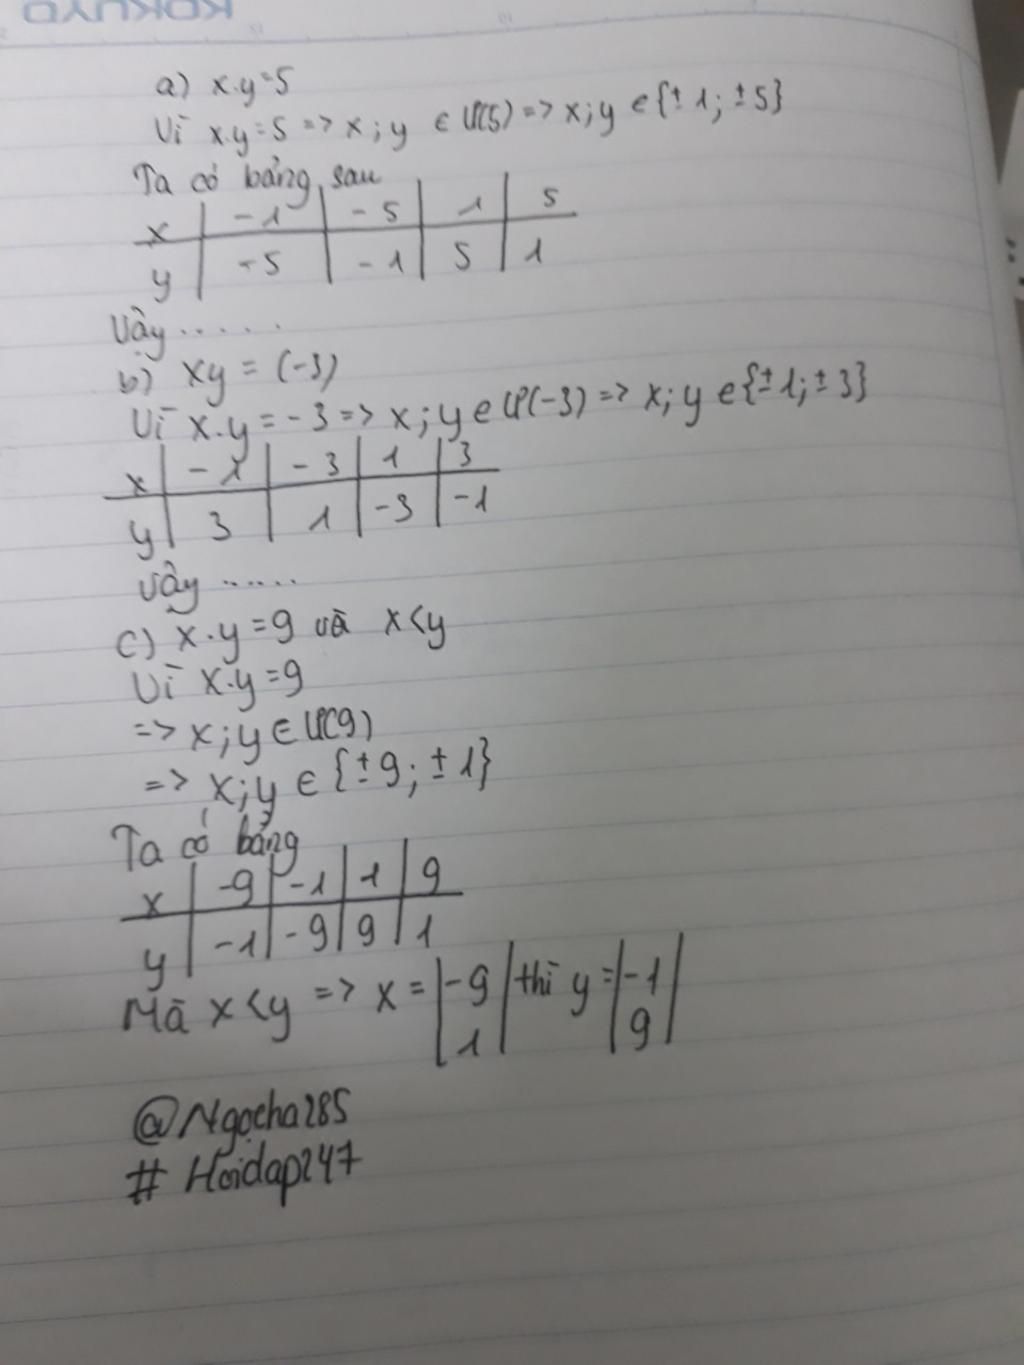 KOKUYO
a) x.y=5
Vì x.y=5 => x;y ∈ Ư(5) => x;y ∈ {± 1; ±5}
Ta có bảng sau
x | -1 | -5 | 1 | 5
y | -5 | -1 | 5 | 1
Vậy .....
b) xy = (-3)
Vì x.y = -3 => x;y ∈ Ư(-3) => x;y ∈ {±1;±3}
x | -1 | -3 | 1 | 3
y | 3 | 1 | -3 | -1
Vậy .....
c) x.y=9 và x<y
Vì x.y=9
=> x;y ∈ Ư(9)
=> x;y ∈ {±9; ±1}
Ta có bảng
x | -9 | -1 | 1 | 9
y | -1 | -9 | 9 | 1
Mà x<y => x = |-9| thì y = |-1|
|1| |9|
@Ngocha285
# Hoidap247